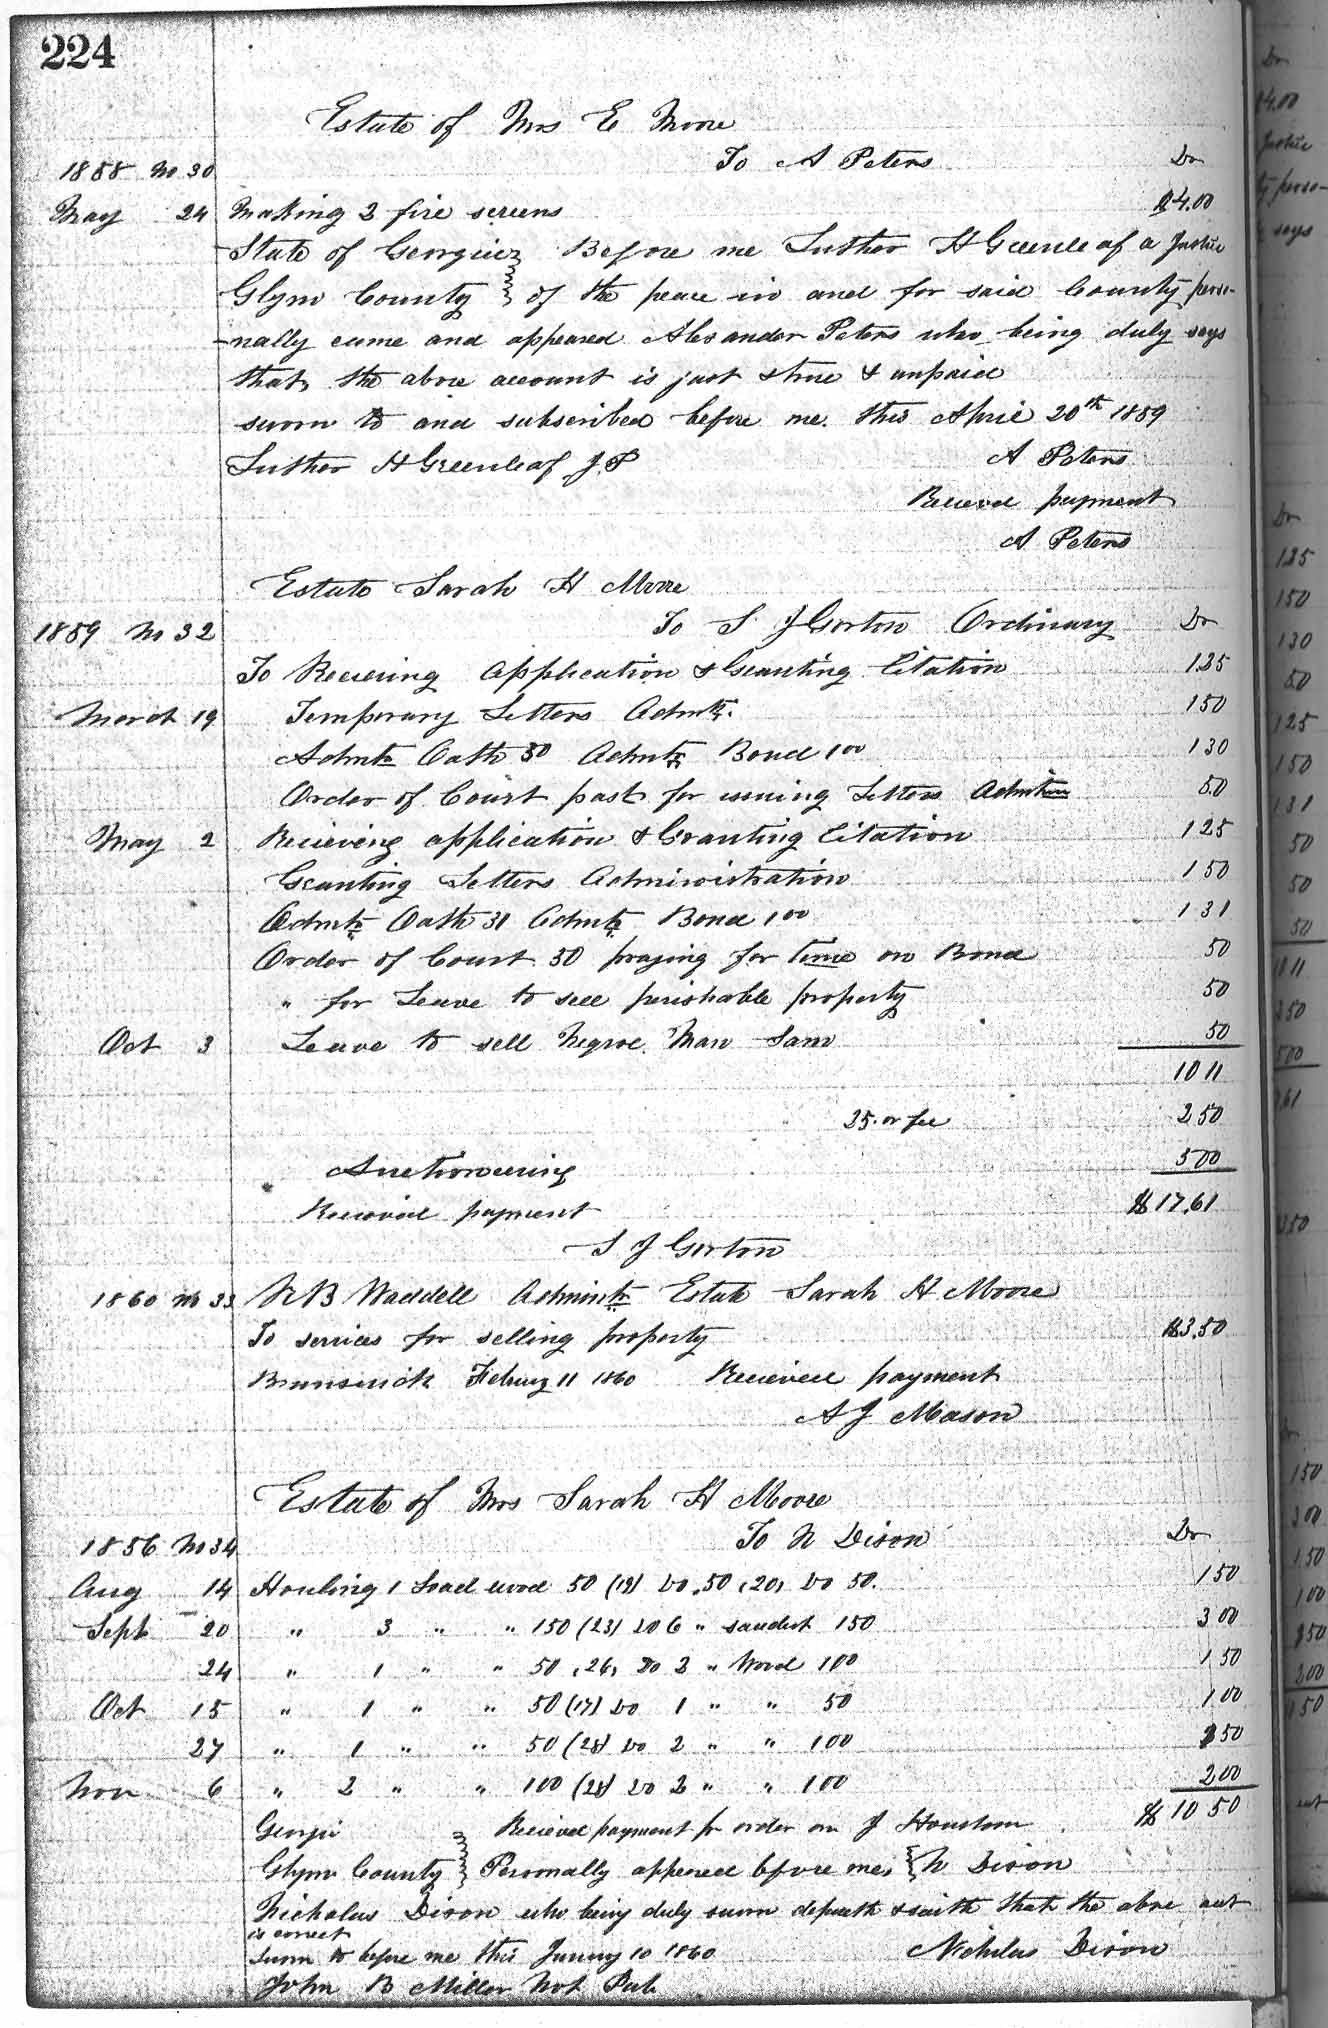 224
Estate of Mrs E Moore
To A Peters Dr
1858 No 30
May 24 Making 2 fire screens $4.00
State of Georgia } Before me Luther H Greenleaf a Justice
Glynn County } of the peace in and for said County perso-
-nally came and appeared Alexander Peters who being duly says
that the above account is just & true & unpaid
sworn to and subscribed before me this April 20th 1859
Luther H Greenleaf J.P A Peters
Recieved payment
A Peters
Estate Sarah H Moore
1859 No 32 To S J Gorton Ordinary Dr
To Recieving Application & Granting Citation 1.25
March 19 Temporary Letters Admtr. 150
Admtr Oath 30 Admtr Bond 1 00 130
Order of Court past for issuing Letters Admtion 50
May 2 Recieveng application & Granting Citation 125
Granting Letters Administration 150
Admtr Oath 31 Admtr Bond 1 00 131
Order of Court 50 praying for time on Bond 50
" for Leave to sell perishable property 50
Oct 3 Leave to sell Negroe Man Sam 50
10 11
25. or fee 2 50
Auctioneering 500
Recieved payment $17.61
S J Gorton
1860 No 33 W B Waddell Admintr Estate Sarah H Moore
To services for selling property $3.50
Brunswick Febuary 11 1860 Recieved payment
A J Mason
Estate of Mrs Sarah H Moore
1856 No 34 To N Dixon Dr
Aug 14 Houling 1 Load wood 50 (19) Do .50 (20) Do 50. 150
Sept 20 " 3 " " 150 (23) Do 6 " sawdust 150 300
24 " 1 " " 50 (26) Do 2 " Wood 100 150
Oct 15 " 1 " " 50 (17) Do 1 " " 50 100
27 " 1 " " 50 (28) Do 2 " " 100 150
Nov 6 " 2 " " 100 (28) Do 2 " " 100 200
Georgia Recieved payment pr order on J Houstoun $10 50
Glynn County } Personally appeared before me, { N Dixon
Nicholas Dixon who being duly sworn deposeth & saith that the above act
is correct
Sworn to before me this January 10 1860 Nicholas Dixon
John B Miller Not Pub